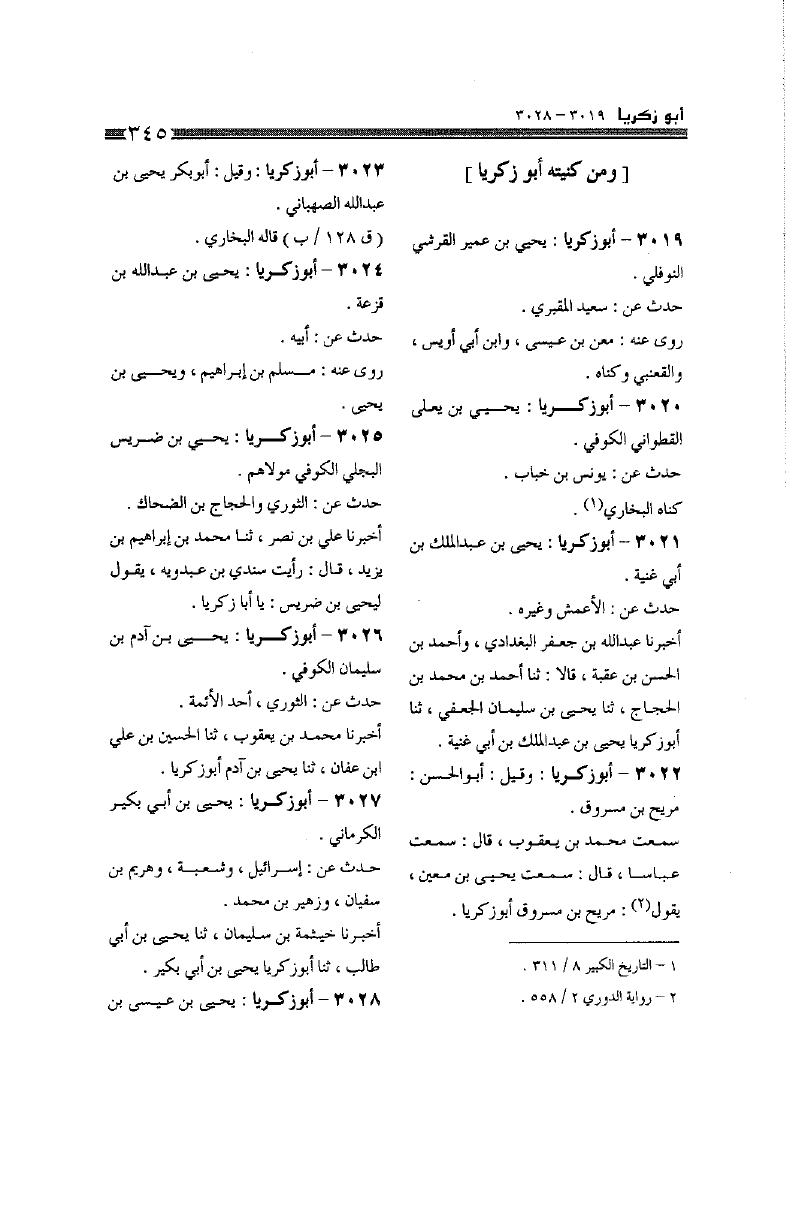 أبو زكريا ٣٠١٩ - ٣٠٢٨
٣٤٥
[ ومن كنيته أبو زكريا ]
٣٠١٩ - أبوزكريا : يحيى بن عمير القرشي
النوفلي .
حدث عن : سعيد المقبري .
روى عنه : معن بن عيسى ، وابن أبي أويس ،
والقعنبي وكناه .
٣٠٢٠ - أبوزكريا : يحيى بن يعلى
القطواني الكوفي .
حدث عن : يونس بن خباب .
كناه البخاري(١) .
٣٠٢١ - أبوزكريا : يحيى بن عبدالملك بن
أبي غنية .
حدث عن : الأعمش وغيره .
أخبرنا عبدالله بن جعفر البغدادي ، وأحمد بن
الحسن بن عقبة ، قالا : ثنا أحمد بن محمد بن
الحجاج ، ثنا يحيى بن سليمان الجعفي ، ثنا
أبوزكريا يحيى بن عبدالملك بن أبي غنية .
٣٠٢٢ - أبوزكريا : وقيل : أبوالحسن :
مريح بن مسروق .
سمعت محمد بن يعقوب ، قال : سمعت
عباسا ، قال : سمعت يحيى بن معين ،
يقول(٢) : مريح بن مسروق أبوزكريا .
١ - التاريخ الكبير ٨ / ٣١١ .
٢ - رواية الدوري ٢ / ٥٥٨ .
٣٠٢٣ - أبوزكريا : وقيل : أبوبكر يحيى بن
عبدالله الصهباني .
( ق ١٢٨ / ب ) قاله البخاري .
٣٠٢٤ - أبوزكريا : يحيى بن عبدالله بن
قزعة .
حدث عن : أبيه .
روى عنه : مسلم بن إبراهيم ، ويحيى بن
يحيى .
٣٠٢٥ - أبوزكريا : يحيى بن ضريس
البجلي الكوفي مولاهم .
حدث عن : الثوري والحجاج بن الضحاك .
أخبرنا علي بن نصر ، ثنا محمد بن إبراهيم بن
يزيد ، قال : رأيت سندي بن عبدويه ، يقول
ليحيى بن ضريس : يا أبا زكريا .
٣٠٢٦ - أبوزكريا : يحيى بن آدم بن
سليمان الكوفي .
حدث عن : الثوري ، أحد الأئمة .
أخبرنا محمد بن يعقوب ، ثنا الحسين بن علي
ابن عفان ، ثنا يحيى بن آدم أبوزكريا .
٣٠٢٧ - أبوزكريا : يحيى بن أبي بكير
الكرماني .
حدث عن : إسرائيل ، وشعبة ، وهريم بن
سفيان ، وزهير بن محمد .
أخبرنا خيثمة بن سليمان ، ثنا يحيى بن أبي
طالب ، ثنا أبوزكريا يحيى بن أبي بكير .
٣٠٢٨ - أبوزكريا : يحيى بن عيسى بن